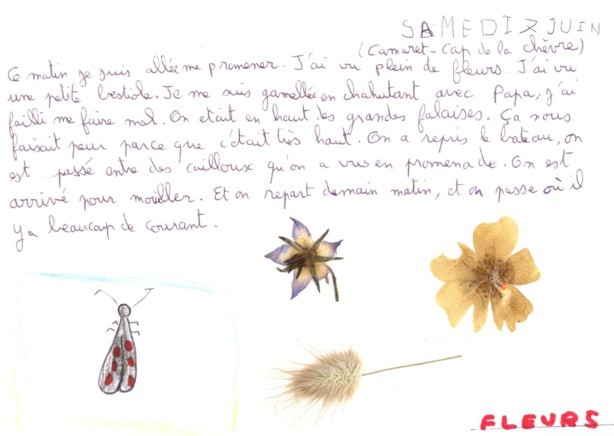 SAMEDI 7 JUIN
(Camaret-Cap de la chèvre)
Ce matin je suis allée me promener. J'ai vu plein de fleurs. J'ai vu
une petite bestiole. Je me suis gamellée en chahutant avec Papa, j'ai
failli me faire mal. On etait en haut des grandes falaises. Ça nous
faisait peur parce que c'était très haut. On a repris le bateau, on
est passé entre des cailloux qu'on a vus en promenade. On est
arrivé pour mouiller. Et on repart demain matin, et on passe où il
y a beaucoup de courant.
FLEURS